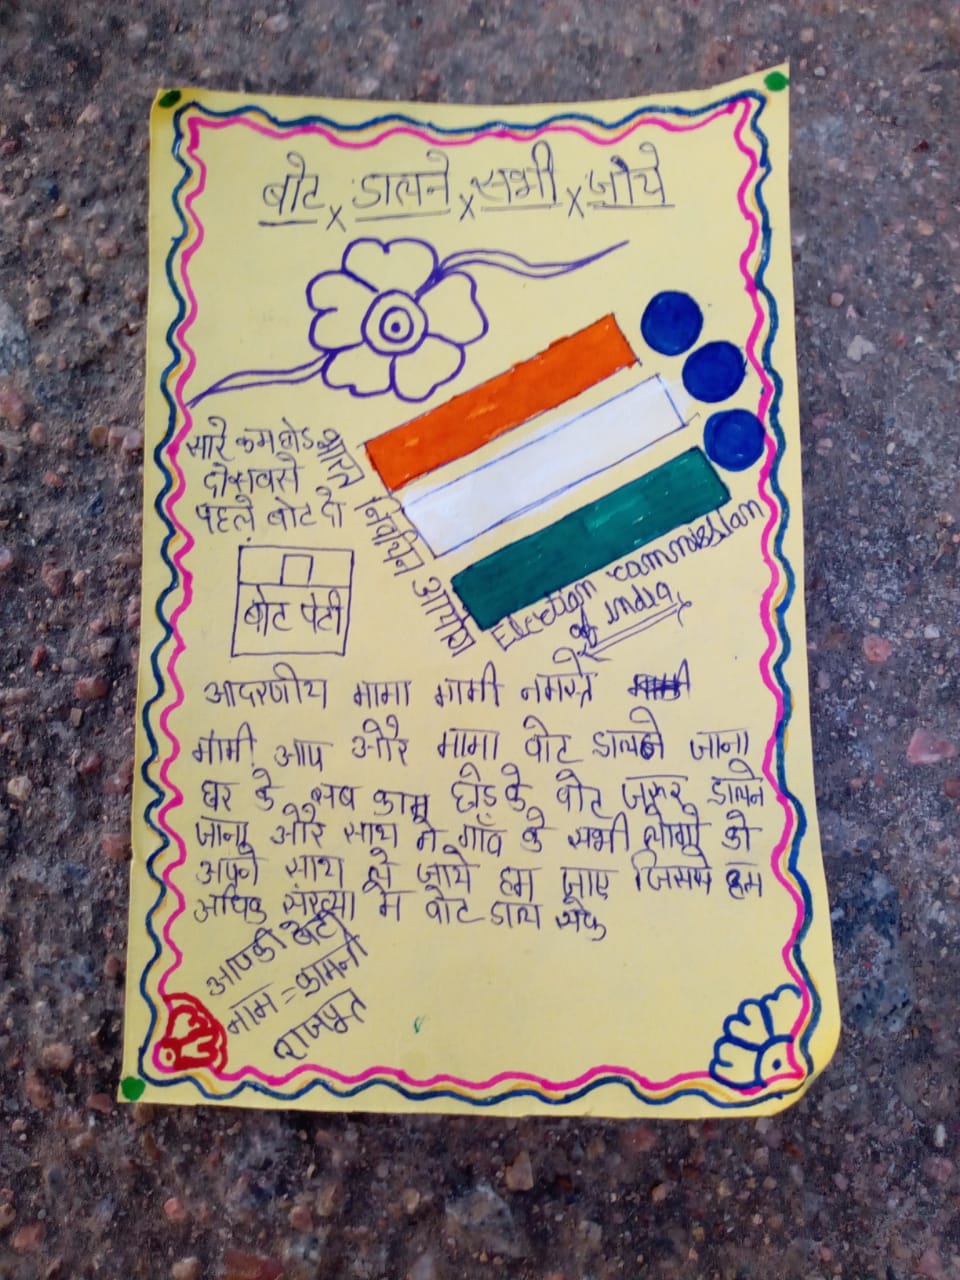 बोट x डालने x सभी x जाये
सारे काम छोड
दो सबसे
पहले बोट दो
भारत निर्वाचन आयोग
Election commission
of India
बोट पेटी
आदरणीय मामा मामी नमस्ते
मामी आप और मामा वोट डालने जाना
घर के सब काम छोड़के वोट जरूर डालने
जाना और साथ मे गाँव के सभी लोगो को
अपने साथ ले जाये हम जाए जिससे हम
अधिक संख्या मे वोट डाल सके
आपकी बेटी
नाम = कामनी
राजपूत